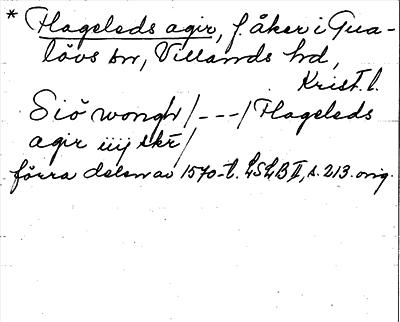 * Flageleds agir, f. åker i Gua-
lövs sn, Villands hd,
Krist. l.
Siö wongh /---/ Flageleds
agir iiij skr /
förra delen av 1570-t. LSLB II, s. 213. orig.